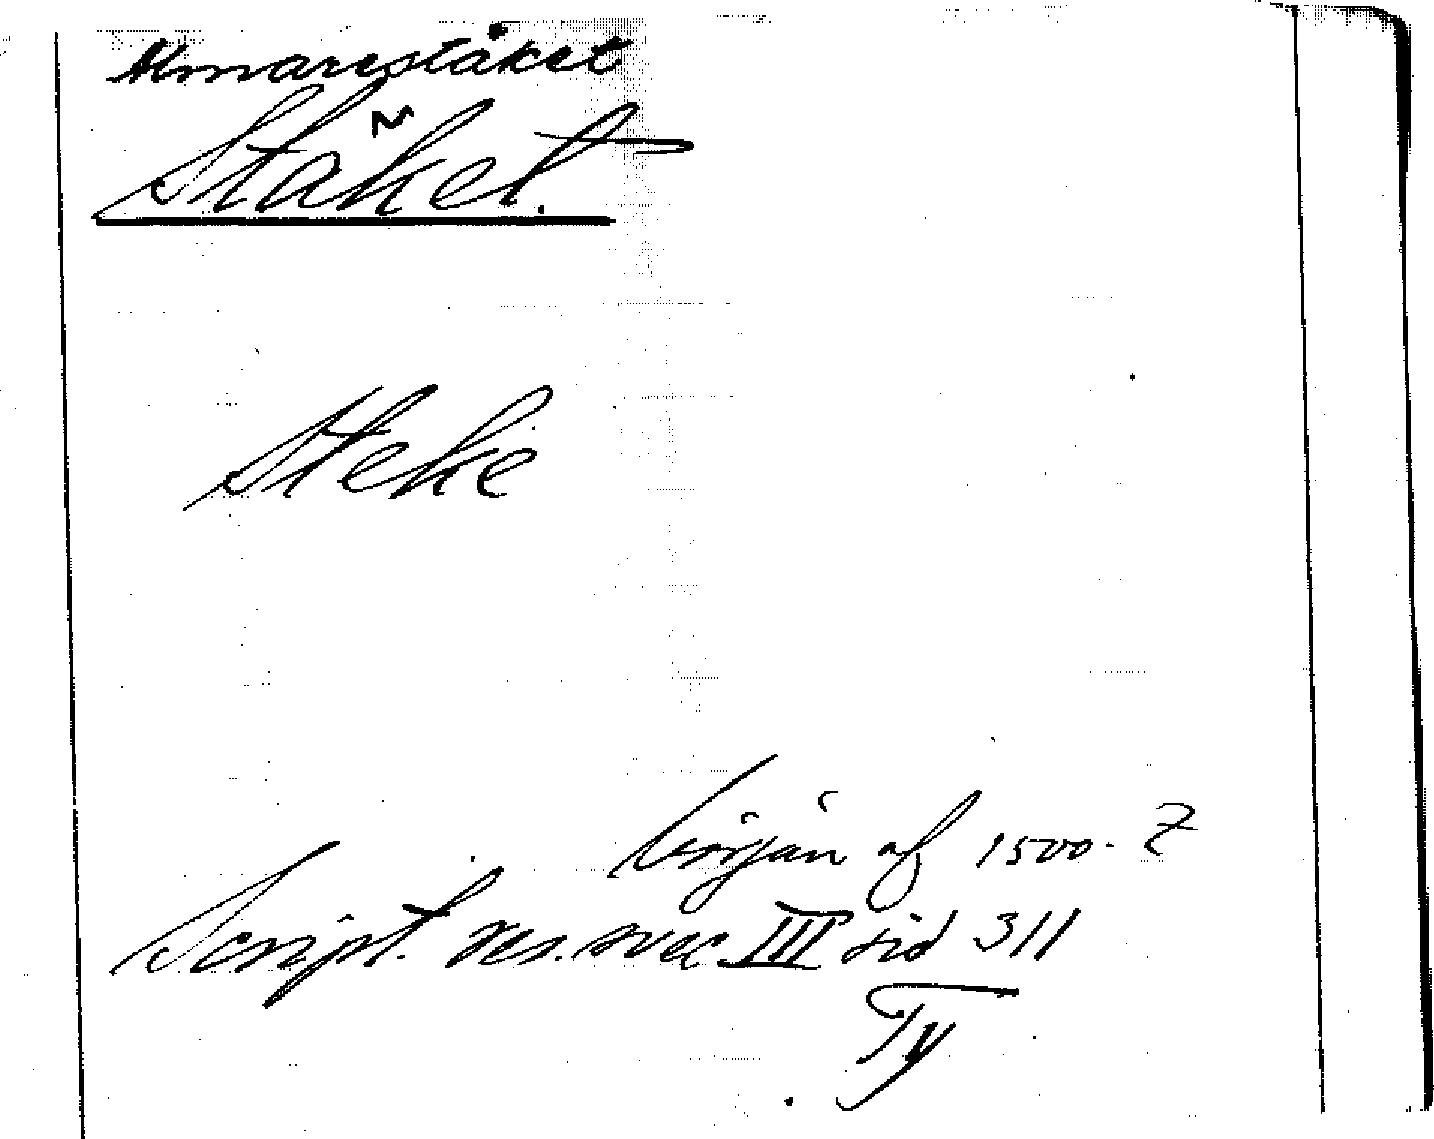 Almarestäket
Stäket.
Steke
början af 1500-
Script. rer. svec. III sid 311
Ty